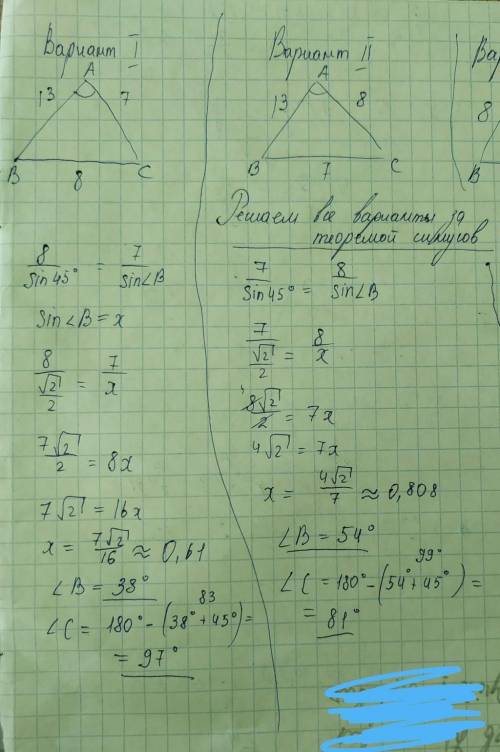 Вариант I
A
13 7
B C
8
8/sin45° = 7/sin∠B
sin∠B = x
8/(√2/2) = 7/x
7√2/2 = 8x
7√2 = 16x
x = 7√2/16 ≈ 0,61
∠B = 38°
83
∠C = 180° - (38° + 45°) =
= 97°
Вариант II
A
13 8
B C
7
Решаем все варианты за
теоремой синусов
7/sin45° = 8/sin∠B
7/(√2/2) = 8/x
4
8√2/2 = 7x
4√2 = 7x
x = 4√2/7 ≈ 0,808
∠B = 54°
99°
∠C = 180° - (54° + 45°) =
= 81°
Вар
8
B